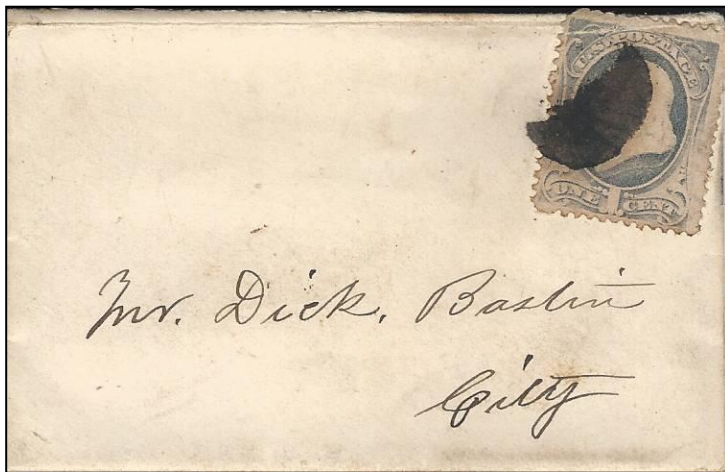 U.S. POSTAGE
ONE 1 CENT
Mr. Dick. Bastin
City